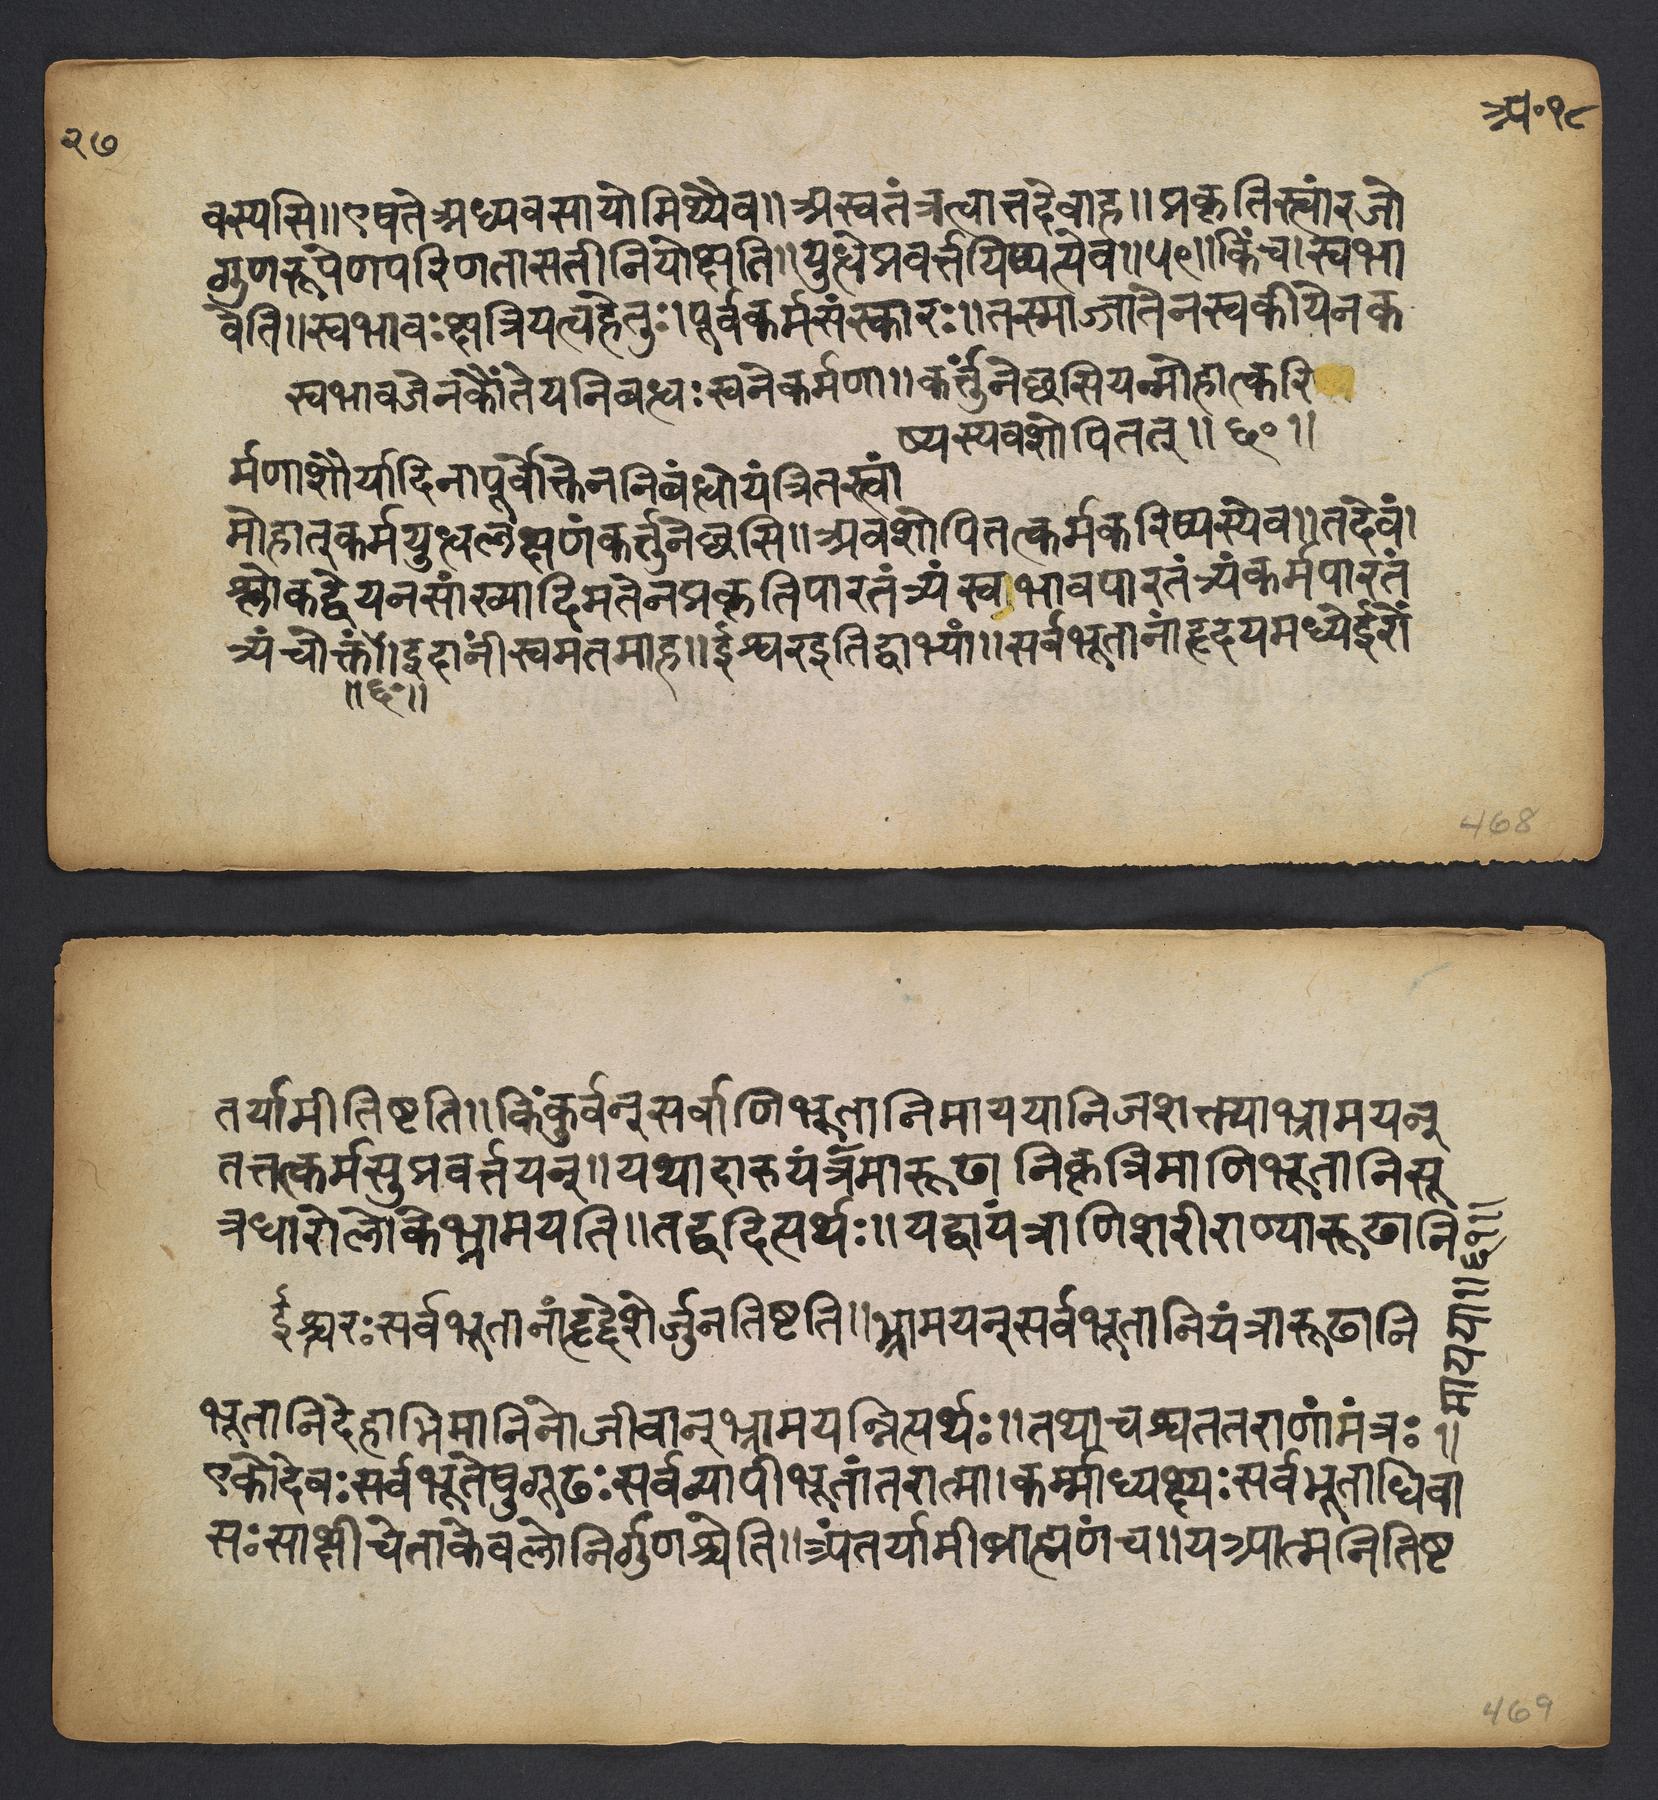 २७
अ॰१८
वस्यसि॥एषतेअध्यवसायोमिथ्यैव॥अस्वतंत्रत्वात्तदेवाह॥प्रकृतिस्त्वांरजो
गुणरूपेणपरिणतासतीनियोक्ष्यति॥युध्येप्रवर्त्तयिष्यत्येव॥५९॥किंच।स्वभा
वेति॥स्वभावःक्षत्रियत्वहेतुः।पूर्वकर्मसंस्कारः॥तस्माज्जातेनस्वकीयेनक
स्वभावजेनकौंतेयनिबध्धःस्वनेकर्मणा॥कर्त्तुंनेछसियन्मोहात्करि
ष्यस्यवशोपितत्॥६॰॥
र्मणाशौर्यादिनापूर्वोक्तेननिबंध्धोयंत्रितस्त्वां
मोहात्कर्मयुध्धलक्षणंकर्त्तुनेछसि॥अवशोपितत्कर्मकरिष्यस्येव॥तदेवं।
श्लोकद्वेयनसांख्यादिमतेनप्रकृतिपारतंत्र्यंस्वाभावपारतंत्र्यंकर्मपारतं
त्र्यंचोक्तं॥इदानींस्वमतमाह॥ईश्वरइतिद्वाभ्यां॥सर्वभूतानांहृदयमध्येईरों
॥६॰॥
468
तर्यामीतिष्टति॥किंकुर्वन्सर्वाणिभूतानिमाययानिजशक्त्याभ्रामयन्
तत्तत्कर्मसुप्रवर्त्तयन्॥यथादारुयंत्रँमारूढानिकृत्रिमाणिभूतानिसू
त्रधारोलोकेभ्रामयति॥तद्वदित्यर्थः॥यद्वायंत्राणिशरीराण्यारूढानि
ईश्वरःसर्वभूतानांहृद्देशेर्जुनतिष्टति॥भ्रामयन्सर्वभूतानियंत्रारूढानि
मायया॥६१॥
भूतानिदेहाभिमानिनोजीवान्भ्रामयन्नित्यर्थः॥तथाचश्वततराणांमंत्रः॥
एकोदेवःसर्वभूतेषुगूढःसर्वव्यापीभूतांतरात्मा।कर्म्माध्यक्ष्यःसर्वभूताधिवा
सःसाक्षीचेताकेवलोनिर्गुणश्चेति॥अंतर्यामीब्राह्मणंच॥यआत्मनितिष्ट
469